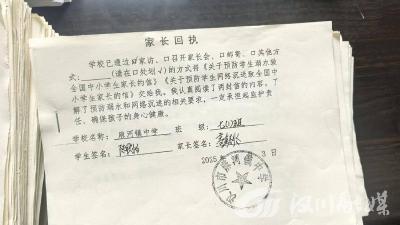 家长回执
学校已通过☑家访、口召开家长会、口邮寄、口其他方
式:______(请在口处划√)的方式将《关于预防学生溺水致
全国中小学生家长的信》《关于预防学生网络沉迷致全国中
小学生家长的信》交给我,我认真阅读了两封信的内容,了
解了预防溺水和网络沉迷的相关要求,一定承担起监护责
任、确保孩子的身心健康。
学校名称: 麻河镇中学 班 级:
学生签名: 家长签名:
2025 3日
汉川市麻河镇中学
汉川融媒